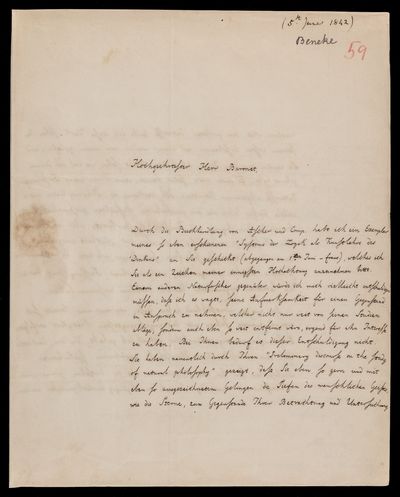 (5th June 1842)
Beneke
59
Hochgeehrtester Herr Baronet,
Durch die Buchhandlung von Asher und Comp. habe ich ein Exemplar
meines so eben erschienenen "Systems der Logik als Kunstlehre des
Denkens" an Sie geschickt (abgegangen am 1sten Juni - franco), welches ich
Sie als ein Zeichen meiner innigsten Hochachtung anzunehmen bitte.
Einem anderen Naturforscher gegenüber würde ich mich vielleicht entschuldigen
müssen, daß ich es wage, seine Aufmerksamkeit für einen Gegenstand
in Anspruch zu nehmen, welcher nicht nur weit von seinen Studien
liegt, sondern auch eben so weit entfernt ist, irgend für ihn Interesse
zu haben. Bei Ihnen bedarf es dieser Entschuldigung nicht.
Sie haben namentlich durch Ihren "Preliminary discourse on the study
of natural philosophy" gezeigt, daß Sie eben so gern und mit
eben so ausgezeichnetem Gelingen die Tiefen des menschlichen Geistes,
wie die Sterne, zum Gegenstande Ihrer Betrachtung und Untersuchung